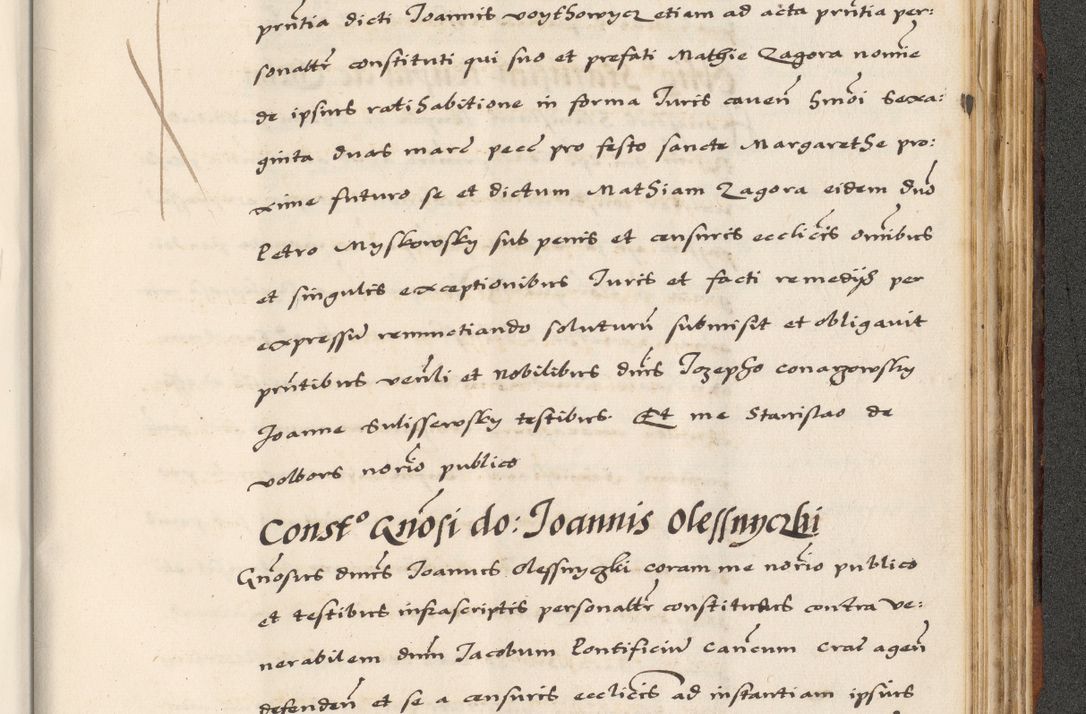 prñtia dicti Joannis voythowycz etiam ad acta prñtia per:
sonaltr̃ constituti qui suo et prefati Mathie Zagora nomie
de ipsius ratihabitione in forma Juris caveñ hmõi sexa:
ginta duas marc̃ pecc̃ pro festo sancte Margarethe pro:
xime futuro se et dictum Mathiam Zagora eidem dño
Petro Myskowsky sub penis et censuris eccličis omĩbus
et singulis exceptionibus Juris et facti remedijs per
expressũ renunciando soluturũ submisit et obligavit
prñtibus veñli et Nobilibus dñis Jozepho conarzowsky
Joanne Sulissewsky testibus Et me Stanislao de
volbors norĩo publico
Constº Gñosi do: Joannis Olessnyczki
Gñosus dñus Joannes Olessnyczki coram me norĩo publico
et testibus infrascriptis personaltr̃ constitutus contra ve:
nerabilem dñm Jacobum Pontificiũ Cañcum Crac̃ ageñ
defendeñ et se a censuris eccličis ad instantiam ipsius